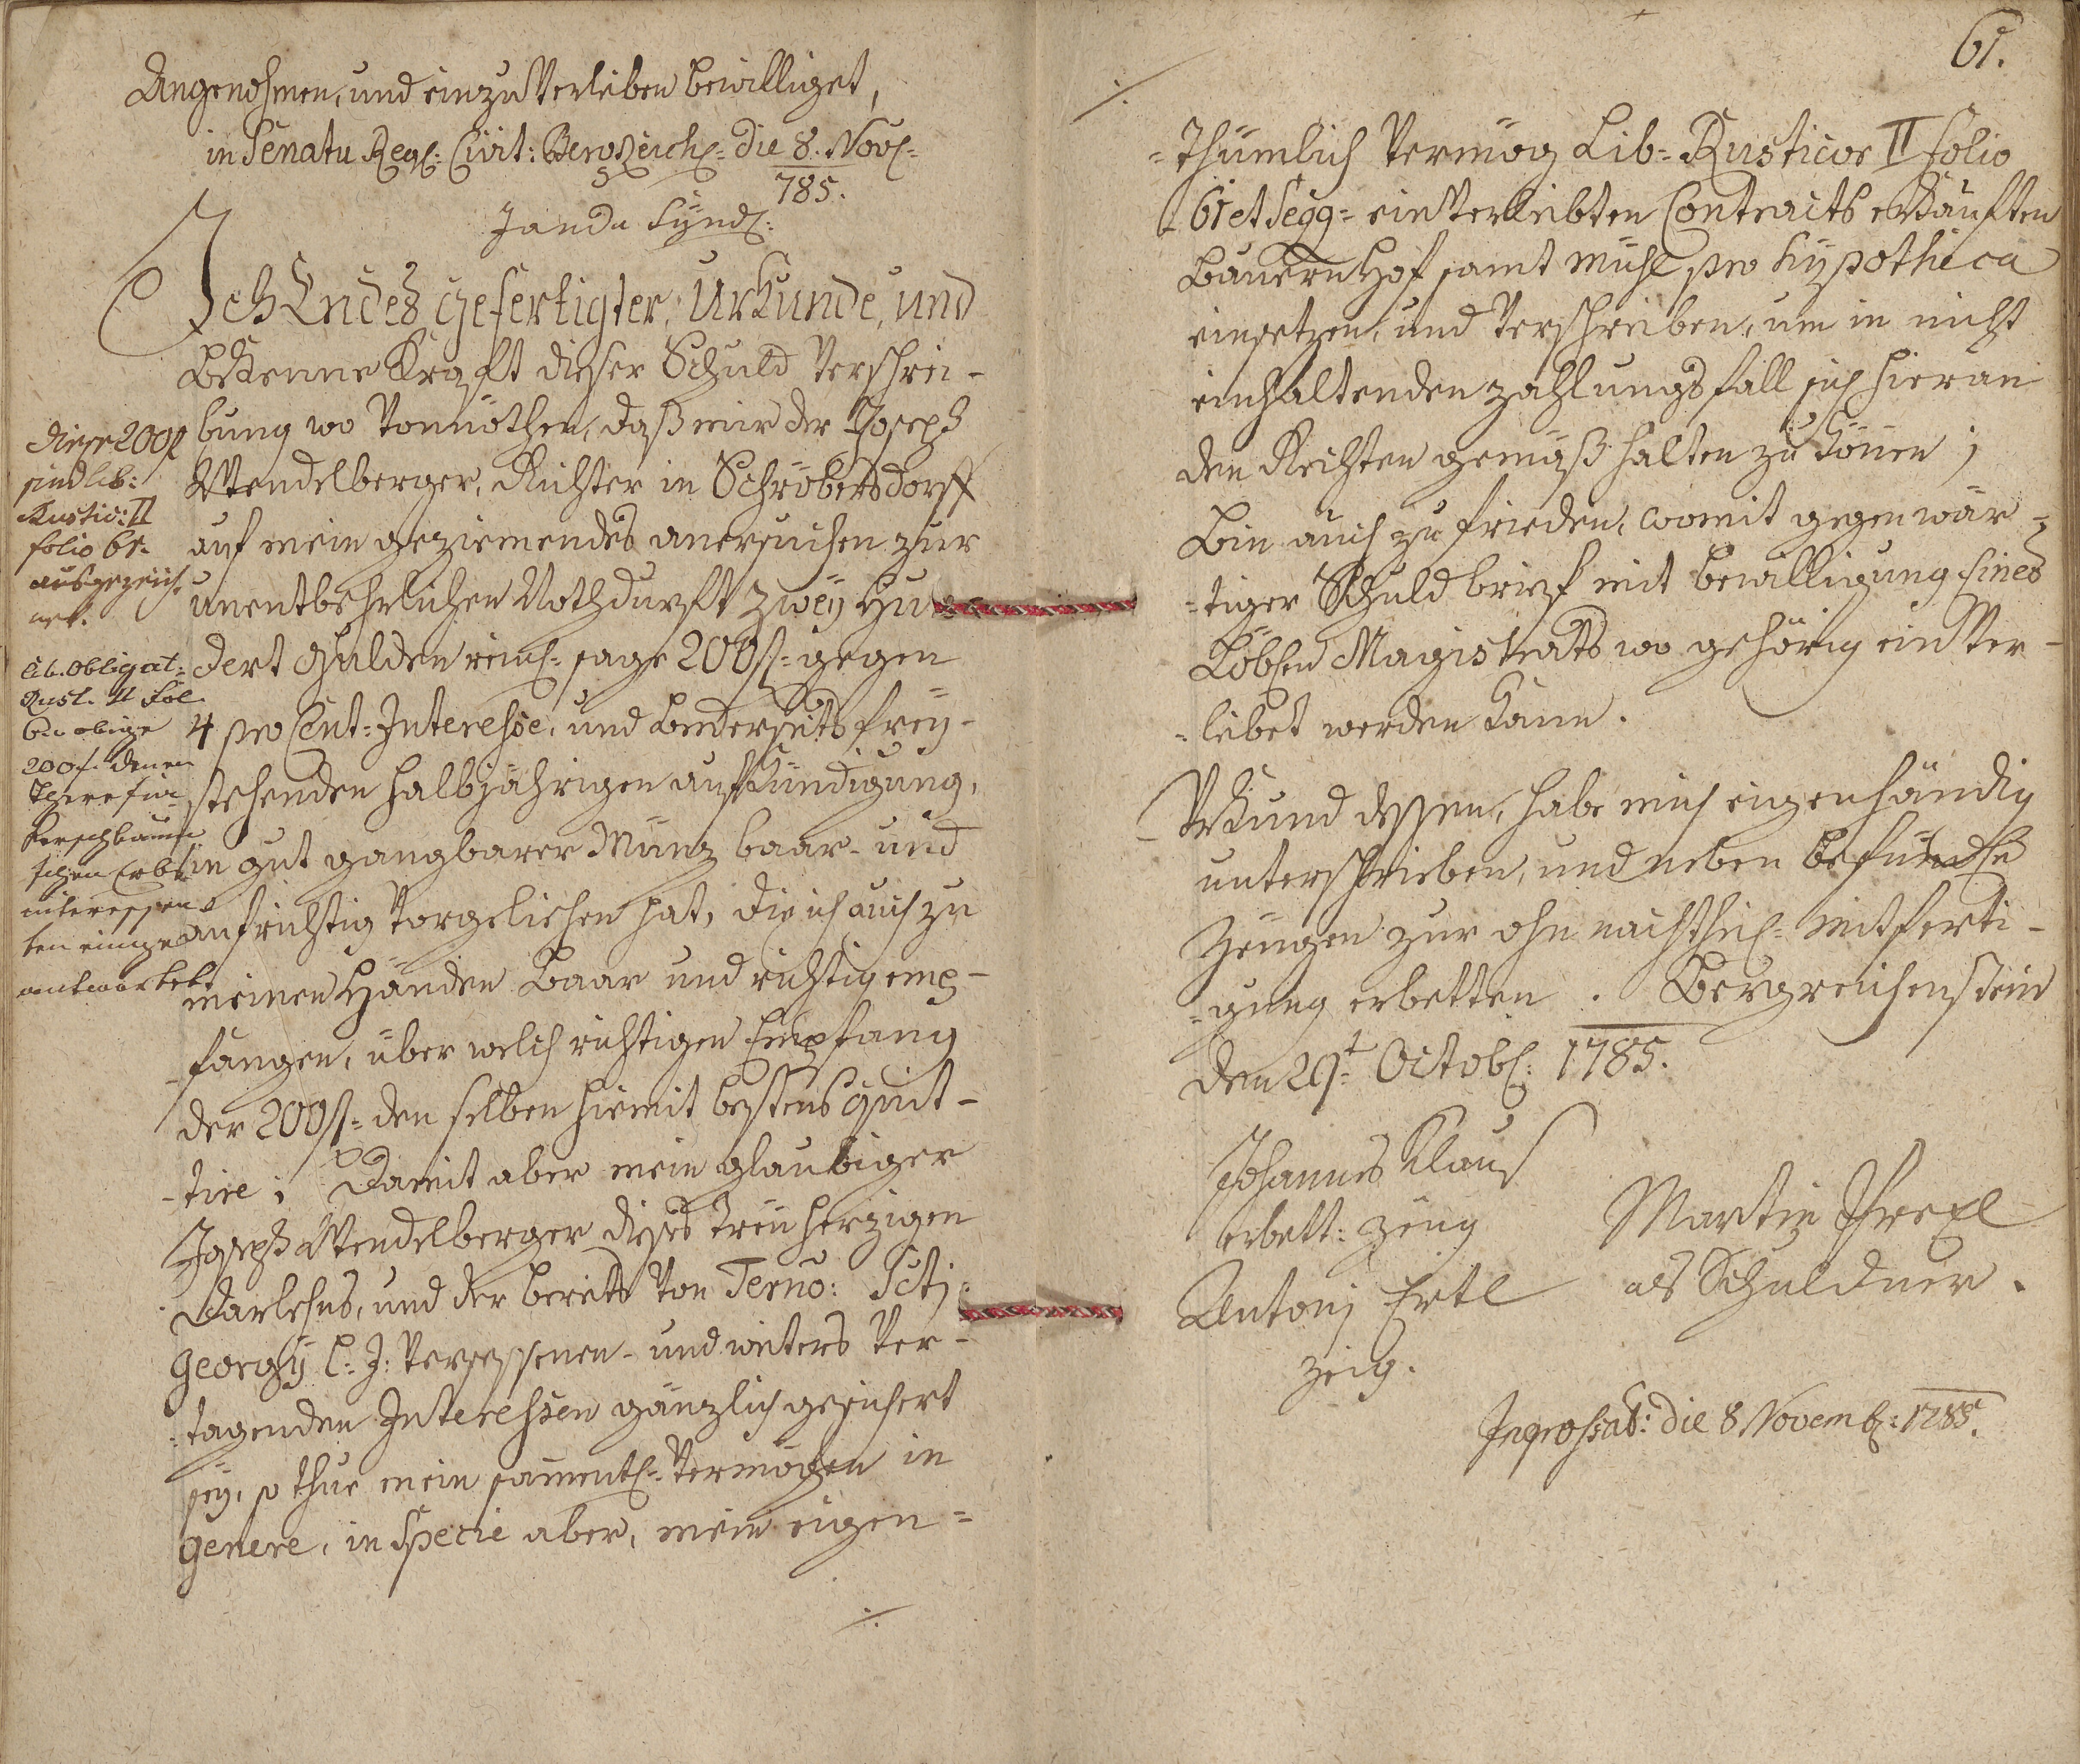 Angenohmen, und einzuverleiben bewilliget,
in Senatu Regl: Civit: BergReichl= die 8. Novl=
785.
Janda Synd:
Ich Endes gefertigter, Urkunde, und
bekenne Kraft dieser Schuld Verschrei-
bung wo Vonnöthen, daß mir der Joseph
Wendelberger, Richter in Schröbersdorff
auf mein geziemendes anersuchen zur
unentbehrlichen Nothdurft zwey Hun-
dert Gulden reinl= sage 200 f= gegen
4 pro Cent= Interesse, und beederseits frey-
stehenden halbjährigen aufkündigung,
in gut gangbarer Münz baar- und
aufrichtig Vorgeliehen hat, die ich auch zu
meinen Händen baar und richtig emp-
-fangen, über welch richtigen Empfang
der 200 f= den selben hiemit bestens quit-
-tire; Damit aber mein glaubiger
Joseph Wendelberger dieses Treu herzigen
Darlehns, und der bereits Von Termo: Scti
Georgy l: J: Versessenen- und weiters Ver-
=tagenden Interessen gänzlich gesichert
sey, so thue mein sammentl= Vermögen in
genere, in Specie aber, mein eigen=
./.
diese 200 f
sind lib:
Rustic: II
folio 61.
ausgezeich-
net.
Lib. Obligat:
Rust. II fol
obige
200 f. denen
Kerschbaum
schen Erbs
interessen
ten einge
antwortet
61.
./.
=thumlich Vermög Lib= Rusticor II folio
61 et seqq= einverleibten Contracts erkauften
Bauern Hof samt Mühl pro hypotheca
einsetzen, und Verschreiben, um in nicht
einhaltenden zahlungs fall sich hieran
den Rechten gemäß halten zu können;
Bin auch zu frieden, womit gegenwär-
=tiger Schuld brief mit bewilligung Eines
Löbln Magistrats wo gehörig ein Ver-
=leibet werden kann.
Urkund dessen, habe mich eigenhändig
unterschrieben, und neben
Zeugen zur ohn nachtheil= mitferti-
=gung erbetten. Bergreichenstein
den 29t= Octobl: 1785.
Johannes Klaus
erbett: Zeug
Martin
als Schuldner.
Antonj Ertl
Zeig.
Ingrossat: die 8 Novemb: 1785.